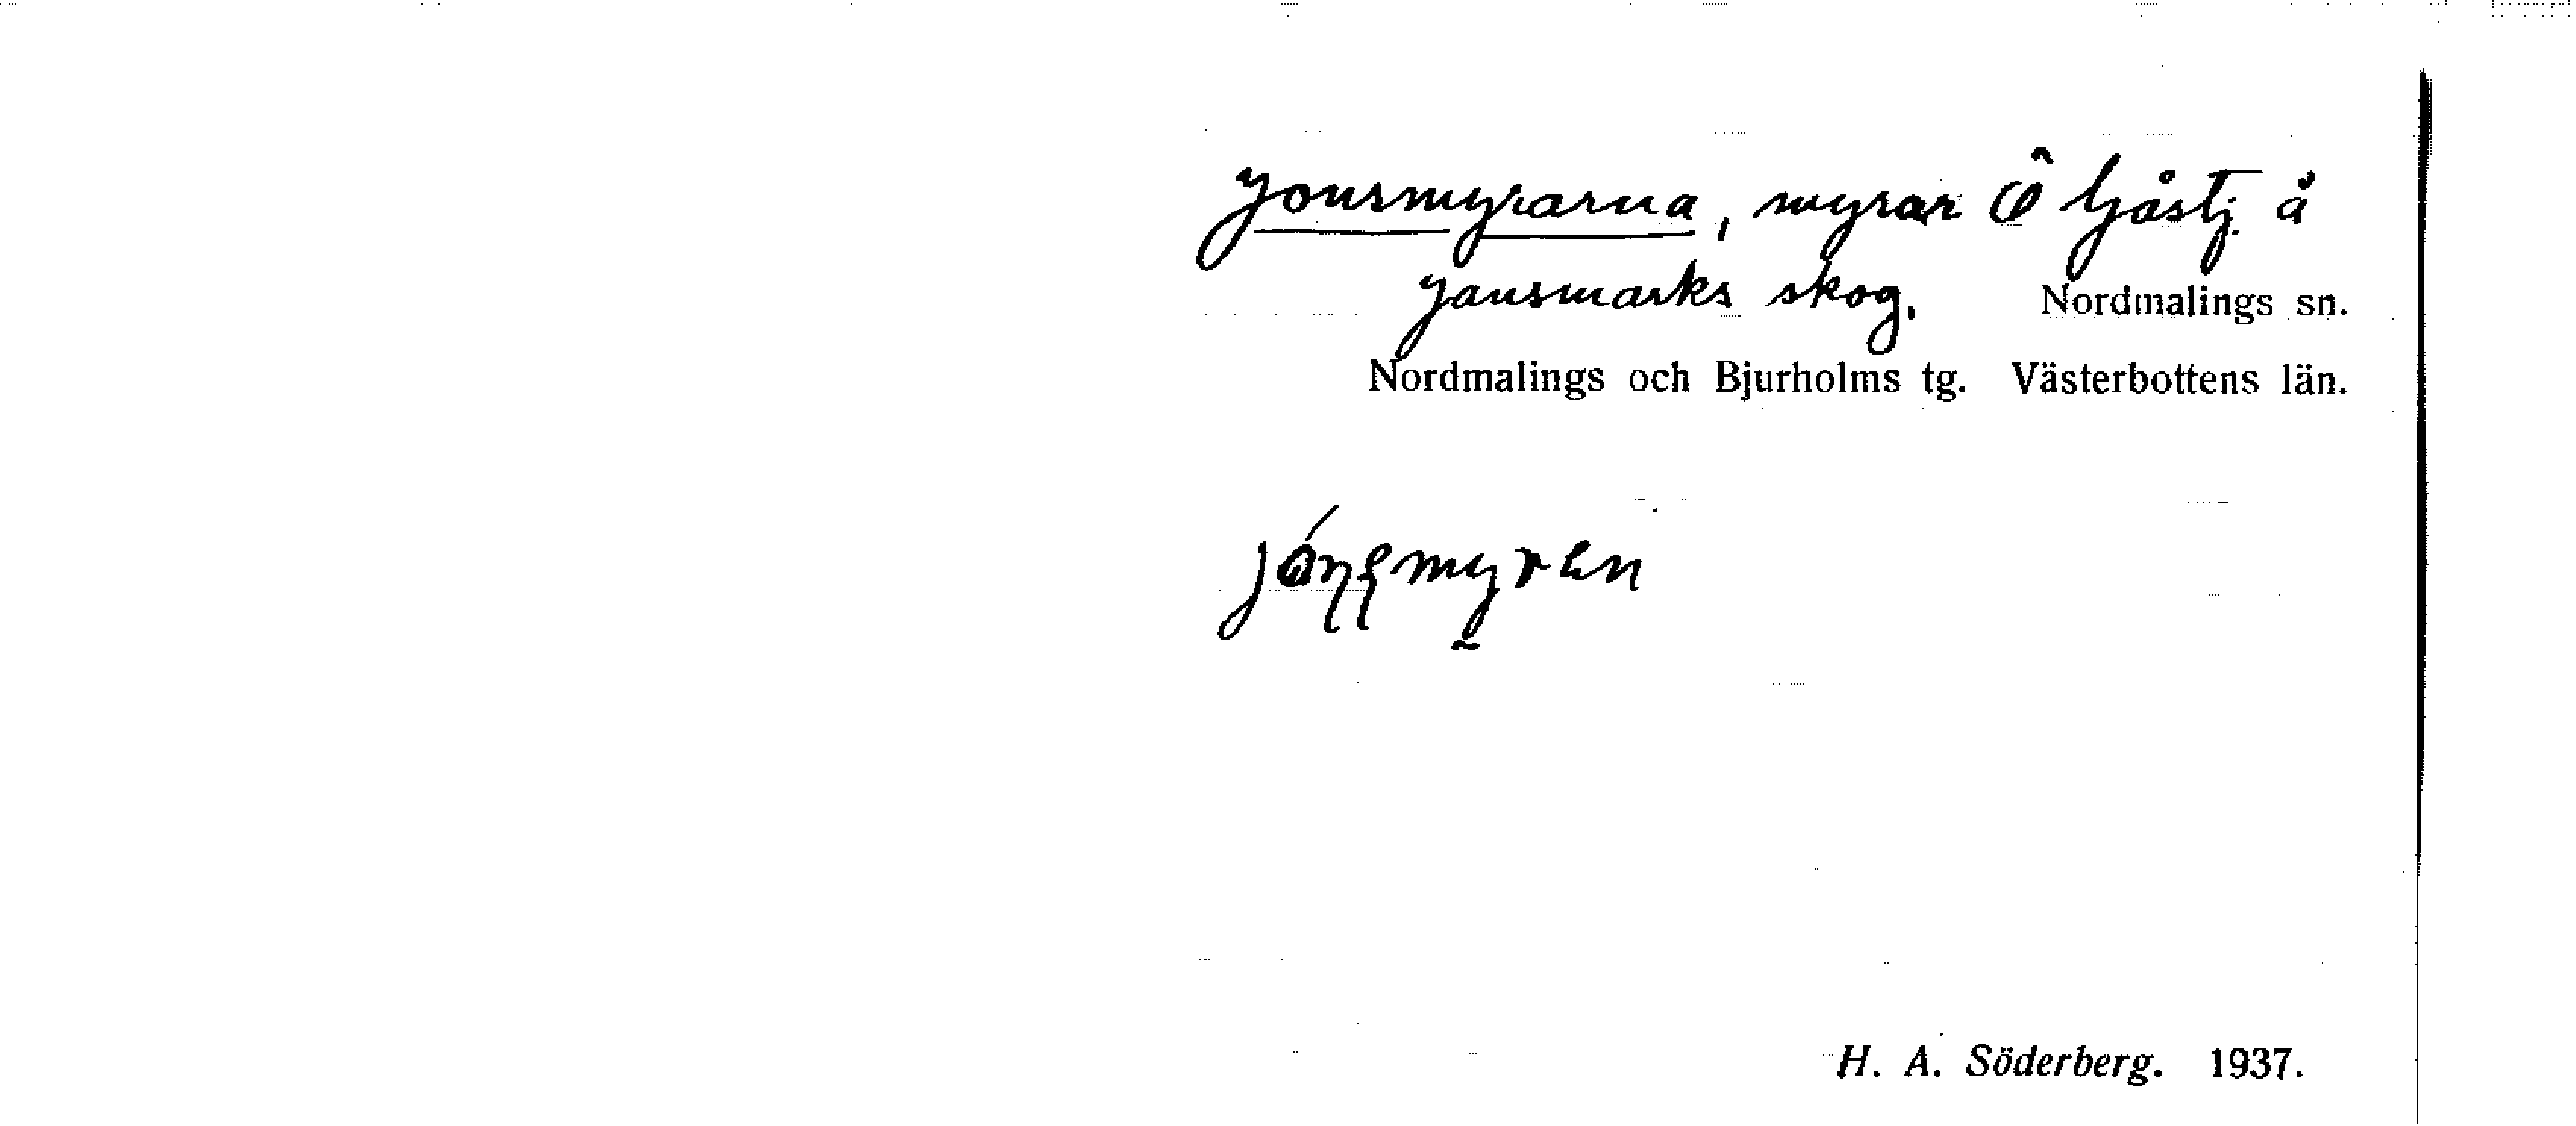 Jonsmyrarna, myrar Ö Ljåstj. å
Jansmarks skog. Nordmalings sn.
Nordmalings och Bjurholms tg. Västerbottens län.
H. A. Söderberg. 1937.